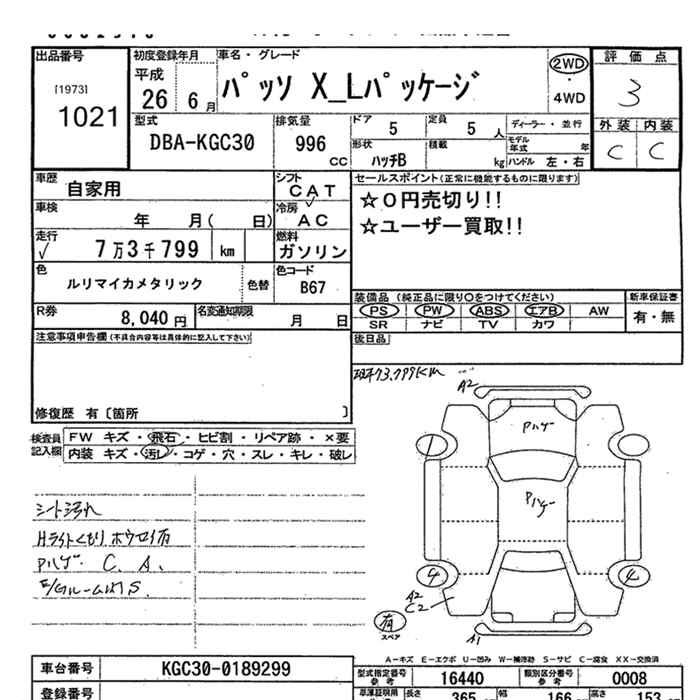 出品番号 初度登録年月 車名・グレード 評価点
[1973] 平成 パッソ X_Lパッケージ 2WD 3
1021 26 6月 4WD
外装 内装
型式 排気量 ドア 定員 ディーラー・並行 C C
DBA-KGC30 996 cc 5 5人 モデル年式 年
形状 積載
ハッチB kg ハンドル 左・右
車歴 シフト セールスポイント(正常に機能するものに限ります)
自家用 CAT ☆0円売切り!!
車検 冷房 ☆ユーザー買取!!
年 月( 日) AC
走行 燃料
7万3千799 km ガソリン
色 色替 色コード
ルリマイカメタリック B67
装備品 (純正品に限り○をつけてください) 新車保証書
R券 名変通知期限 PS PW ABS エアB AW 有・無
8,040円 月 日 SR ナビ TV カワ
注意事項申告欄(不具合内容等は具体的に記入して下さい) 後日品
メーター73,799KM
A2
修復歴 有〔箇所 〕
検査員記入欄 FW キズ・飛石・ヒビ割・リペア跡・×要
内装 キズ・汚レ・コゲ・穴・スレ・キレ・破レ
Pハゲ
Pハゲ
シート汚れ
Hライトくもり
Pハゲ. C. A.
A2
C2
有
スペア
A1
A-キズ E-エクボ U-凹み W-補修跡 S-サビ C-腐食 XX-交換済
車台番号 KGC30-0189299 型式指定番号 参考 16440 類別区分番号 参考 0008
登録番号 長さ 365 幅 166 高さ 153